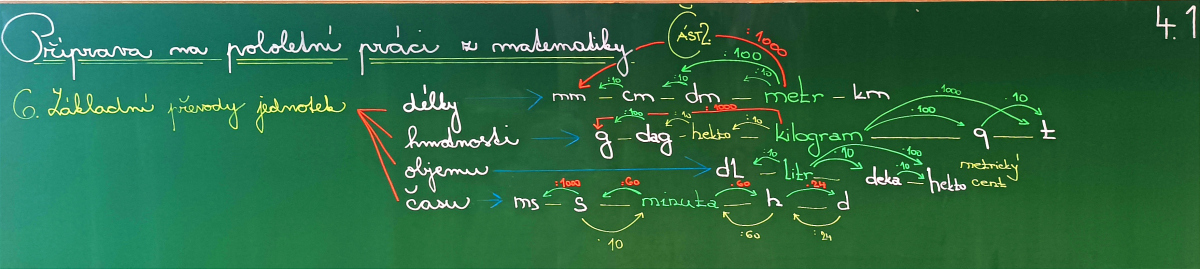 Příprava na pololetní práci z matematiky ČÁST 2. 4.1
6. Základní převody jednotek
délky mm - cm - dm - metr - km
:10 :10 :10 :100 :1000
hmotnosti g - dag - hekto - kilogram - q - t
:100 :10 :1000 :100 :1000 :10
metrický cent
objemu dL - litr - deka - hekto
:10 10 :10 :100
času ms - s - minuta - h - d
:1000 :60 :60 :24
:10 :60 :24